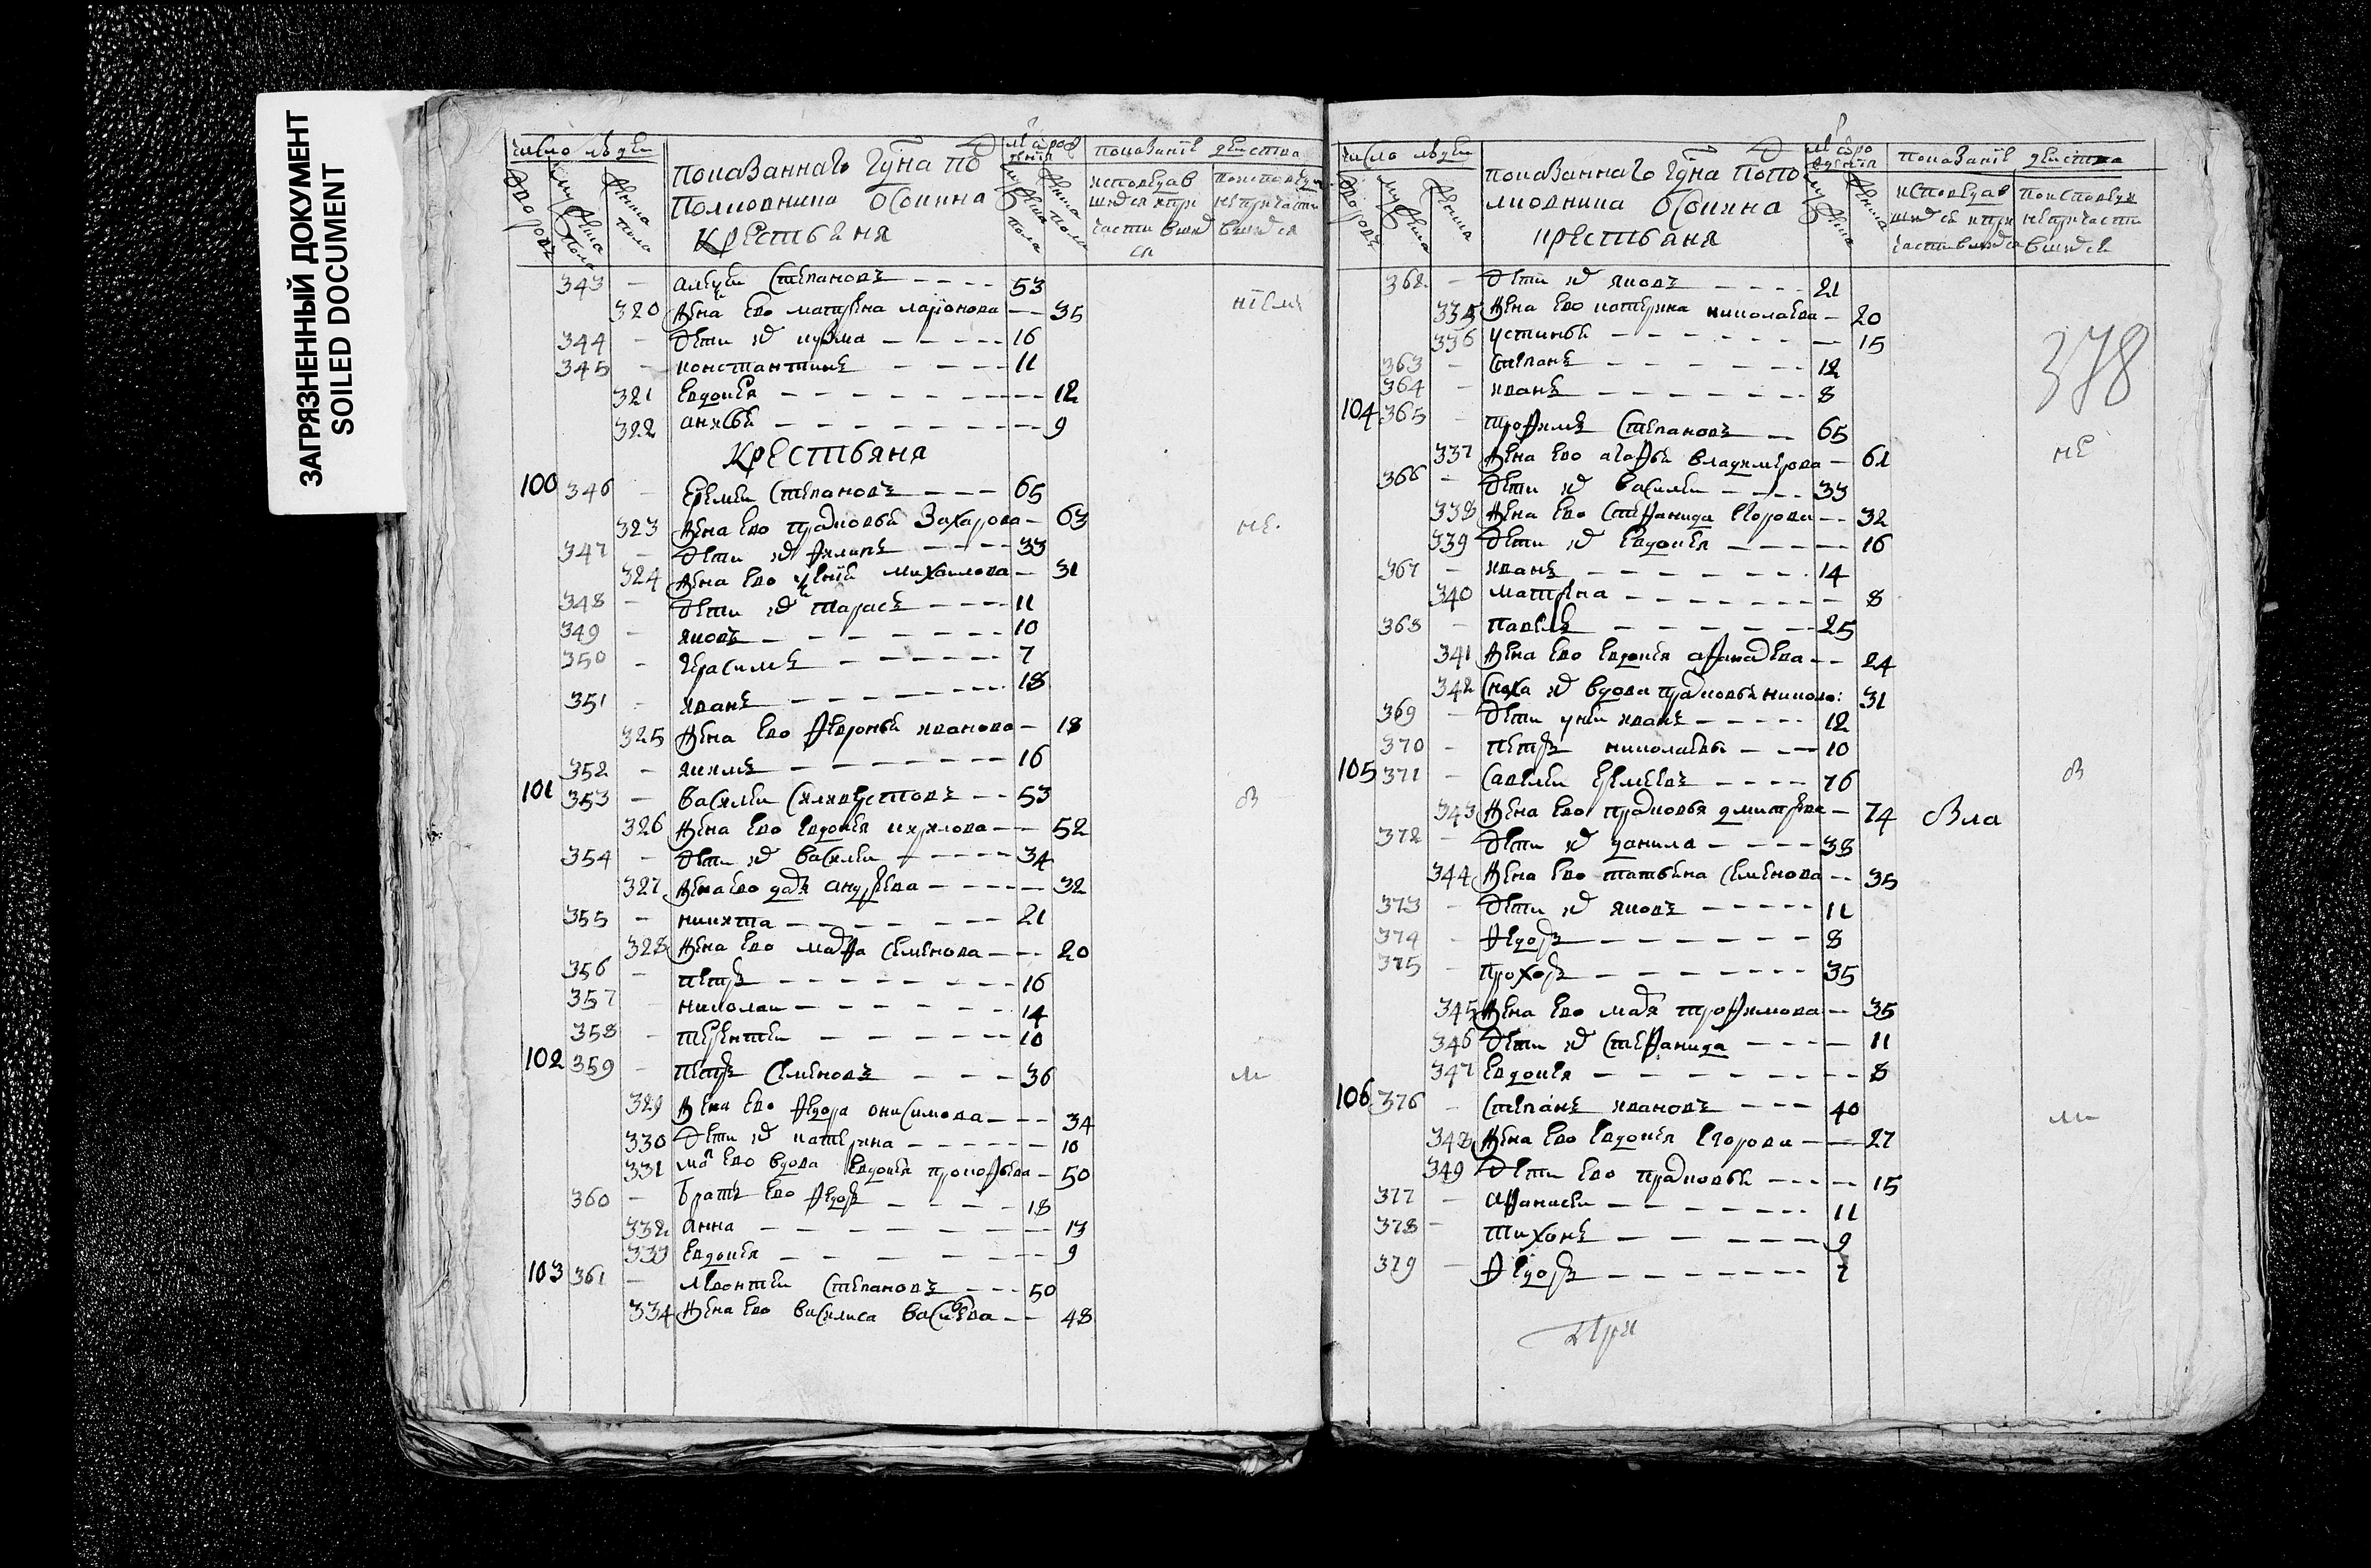 ЗАГРЯЗНЕННЫЙ ДОКУМЕНТ
SOILED DOCUMENT
число людеи
показаннаго гдна по
полковника Осонина
крестьяня
показанïе деиства
исповедав
343 — алеѯеи степановъ 53
320 жена ево матрена ларïонова 35
344 — дети их кузма 16
345 — константинъ 11
321 евдокѣя 12
322 анисья 9
Крестьяня
100 346 — еремеи степановъ 65
323 жена ево прасковья захарова 63
не
347 — дети их филипъ 33
324 жена ево михаилова 31
348 — дети их тарасъ 11
349 — яковъ 10
350 — герасимъ 7
351 — иванъ 18
325 жена ево февронья иванова 18
352 — якимъ 16
101 353 — василеи силивестровъ 53
326 жена ево евдокѣя кирилова 52
354 — дети их василеи 34
327 жена ево дарья андреева 32
355 — никита 21
328 жена ево марфа семенова 20
356 — петръ 16
357 — николаи 14
358 — терентеи 10
102 359 — петръ семеновъ 36
329 жена ево федора онисимова 34
330 дети их катерина 10
331 мать ево вдова евдокѣя прокофьева 50
360 — братъ ево федоръ 18
332 анна 13
333 евдокѣя 9
103 361 — леонтеи степановъ 50
334 жена ево василиса васильева 48
число людеи
показаннаго гдна попо
лковника Осонина
крестьяня
показанïе деиства
исповедав
378
362 — дети их яковъ 21
335 жена ево катерина николаева 20
336 устинья 15
363 — степанъ 12
364 — иванъ 8
104 365 — трофимъ степановъ 65
337 жена ево агафья владимерова 61
не
366 — дети их василеи 33
338 жена ево стефанида егорова 32
339 дети их евдокѣя 16
367 — иванъ 14
340 матрена 8
368 — павелъ 25
341 жена ево евдокѣя афанасьева 24
342 сноха их вдова прасковья никола: 31
369 — дети у неи иванъ 12
370 — петръ николаевы 10
105 371 — савелеи еремеевъ 76
343 жена ево прасковья дмитрева 74
372 — дети их данила 38
344 жена ево татьяна семенова 35
373 — дети их яковъ 11
374 — федоръ 8
375 — прохоръ 35
345 жена ево марья трофимова 35
346 дети их стефанида 11
347 евдокѣя 8
106 376 — степанъ ивановъ 40
348 жена ево евдокѣя егорова 27
349 дети ево прасковья 15
377 — афанасеи 11
378 — тихонъ 9
379 — федоръ 7